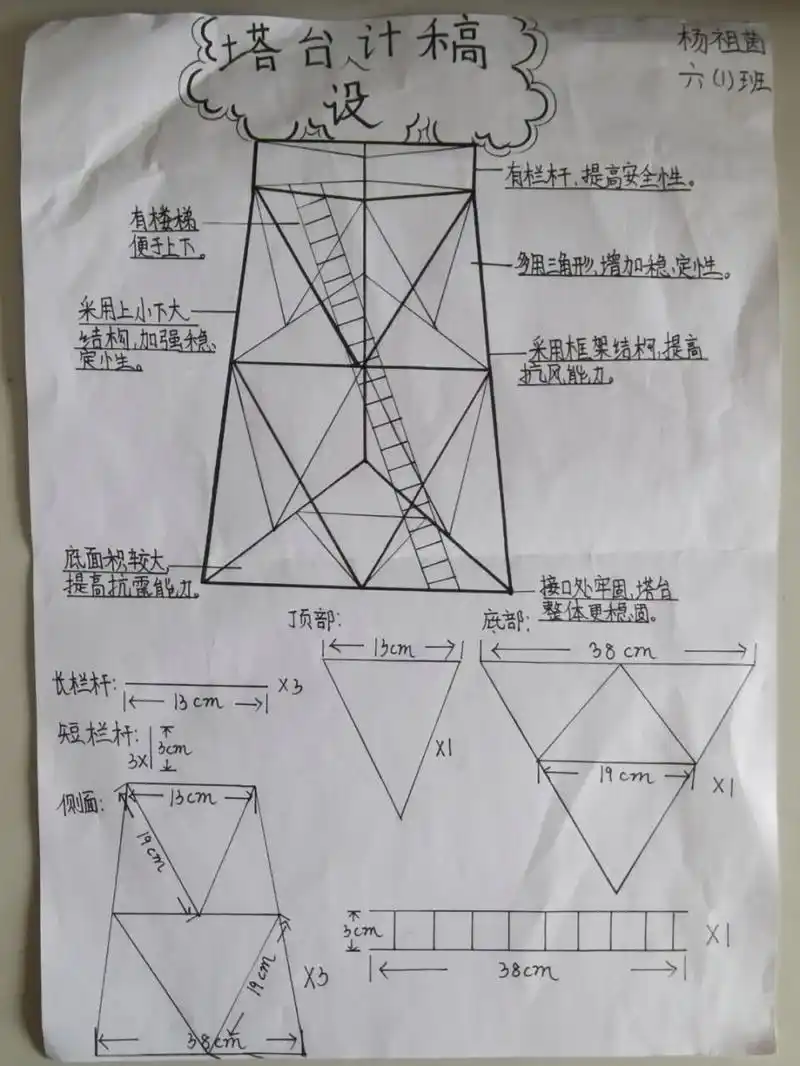 塔台设计稿
杨祖茵
六(1)班
有栏杆,提高安全性。
有楼梯
便于上下。
多用三角形,增加稳定性。
采用上小下大
结构,加强稳
定性。
采用框架结构,提高
抗风能力。
底面积较大,
提高抗震能力。
接口处牢固,塔台
整体更稳固。
顶部:
13cm
X1
底部:
38cm
19cm
X1
长栏杆:
13cm
X3
短栏杆:
3X
3cm
侧面:
13cm
19cm
19cm
38cm
X3
3cm
38cm
X1